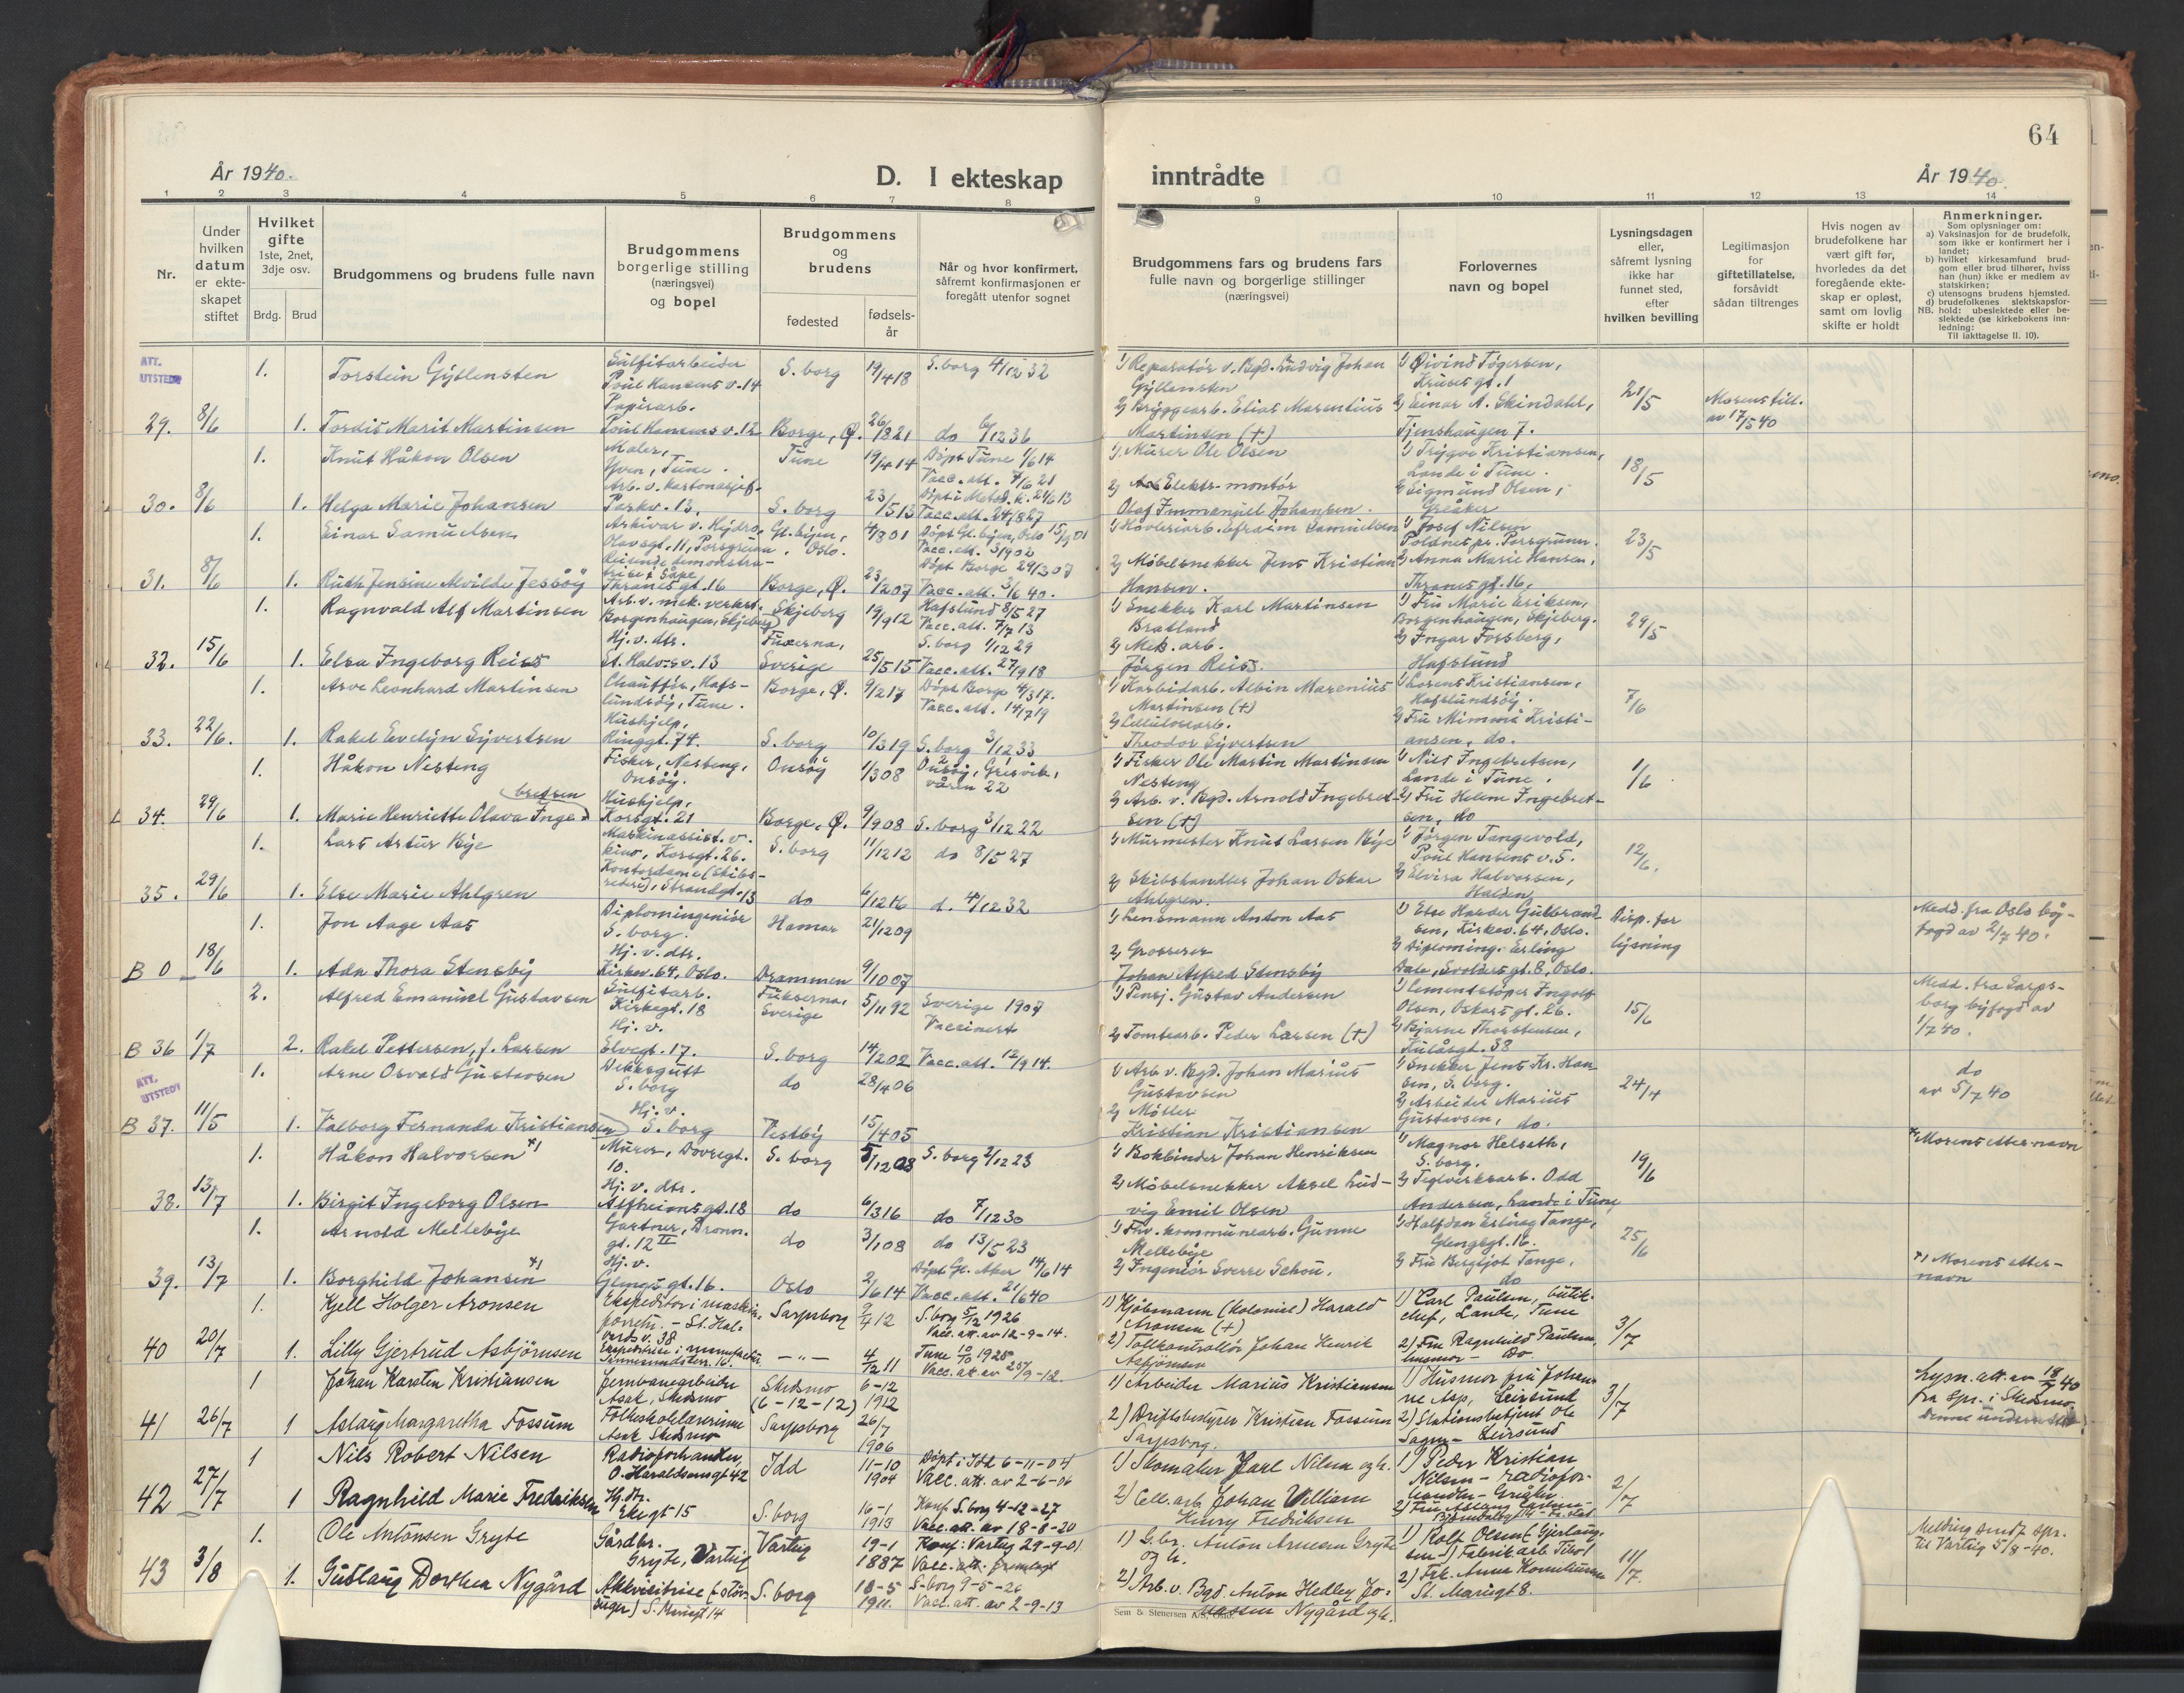 64
År 1940.
D. I ekteskap
inntrådte
År 1940.
1 2 3 4 5 6 7 8 9 10 11 12 13 14
Nr.
Under hvilken datum er ekteskapet stiftet
Hvilket gifte 1ste, 2net, 3dje osv.
Brdg. Brud
Brudgommens og brudens fulle navn
Brudgommens borgerlige stilling (næringsvei) og bopel
Brudgommens og brudens
fødested
fødsels-år
Når og hvor konfirmert, såfremt konfirmasjonen er foregått utenfor sognet
Brudgommens fars og brudens fars fulle navn og borgerlige stillinger (næringsvei)
Forlovernes navn og bopel
Lysningsdagen eller, såfremt lysning ikke har funnet sted, efter hvilken bevilling
Legitimasjon for giftetillatelse, forsåvidt sådan tiltrenges
Hvis nogen av brudefolkene har vært gift før, hvorledes da det foregående ekteskap er opløst, samt om lovlig skifte er holdt
Anmerkninger.
Som oplysninger om:
a) Vaksinasjon for de brudefolk, som ikke er konfirmert her i landet;
b) hvilket kirkesamfund brudgom eller brud tilhører, hviss han (hun) ikke er medlem av statskirken;
c) utensogns brudens hjemsted.
d) brudefolkenes slektskapsforhold: ubeslektede eller beslektede (se kirkebokens innledning:
NB.
Til iakttagelse II. 10).
ATT. UTSTEDT
1. Torstein Gyllensten Sulfitarbeider Poul Hansens v. 14 S. borg 19/4 18 S. borg 4/12 32 1) Reparatör v. Bgd. Ludvig Johan Gyllensten 1) Øivind Tögersen, Kruses gt. 1 21/5 Morens till. av 17/5 40
29. 8/6 1. Tordis Marit Martinsen Papirarb. Poul Hansens v. 12 Borge, Ø. 26/8 21 do 6/12 36 2) Bryggearb. Elias Marentius Martinsen (+) 2) Einar A. Skindahl, Tjenshaugen 7.
1. Knut Håkon Olsen Maler, Yven, Tune. Tune 19/4 14 Döpt Tune 1/6 14 Vacc. att. 7/6 21 1) Murer Ole Olsen 1) Trygve Kristiansen, Lande i Tune. 18/5
30. 8/6 1. Helga Marie Johansen Arb. v. kartonasjef. Parkv. 13, S. borg 23/5 13 Döpt i Metod. k. 24/6 13 Vacc. att. 24/8 27 2) Elektr. montör Olaf Immanuel Johansen. 2) Sigmund Olsen, Greåker
1. Einar Samuelsen Arkivar v. Hydro, Olavsgt. 11, Porsgrunn. Gl. byen, Oslo. 4/8 01 Döpt Gl. byen, Oslo 15/9 01 Vacc. att. 3/9 02 1) Hövleriarb. Efraim Samuelsen 1) Josef Nilsen Poldnes pr. Porsgrunn. 23/5
31. 8/6 1. Ruth Jensine Alvilde Jessöy Reisende demonstratrise i såpe Thranes gt. 16 Borge, Ø. 23/12 07 Döpt Borge 29/3 07 Vacc. att. 3/6 40. 2) Möbelsnekker Jens Kristian Hansen. 2) Anna Marie Hansen, Thranes gt. 16.
1. Ragnvald Alf Martinsen Arb. v. mek. verkst. Borgenhaugen, Skjeberg Skjeberg 19/9 12 Hafslund 8/5 27 Vacc. att. 7/7 13 1) Snekker Karl Martinsen Bratland 1) Fru Marie Eriksen, Borgenhaugen, Skjeberg. 29/5
32. 15/6 1. Elsa Ingeborg Reiss Hj. v. dtr. St. Halvs v. 13 Fuxerna, Sverige 25/5 15 S. borg 1/12 29 Vacc. att. 27/9 18 2) Mek. arb. Jörgen Reiss. 2) Ingar Forsberg, Hafslund
1. Arve Leonhard Martinsen Chaufför, Hafslundsöy, Tune. Borge, Ø. 9/2 17 Döpt Borge 4/3 17. Vacc. att. 14/7 19 1) Karbidarb. Albin Marenius Martinsen (+) 1) Lorens Kristiansen, Hafslundsöy. 7/6
33. 22/6. 1. Rakel Evelyn Syvertsen Hushjelp, Ringgt. 74. S. borg 10/3 19 S. borg 3/12 33 2) Cellulosearb. Theodor Syvertsen 2) Fru Mimmi Kristiansen, do.
1. Håkon Nesteng Fisker, Nesteng, Onsöy. Onsöy 1/3 08 Onsöy, Gresvik, våren 22 1) Fisker Ole Martin Martinsen Nesteng 1) Nils Ingebretsen, Lande i Tune. 1/6
34. 29/6 1. Marie Henriette Olava Ingebretsen Hushjelp, Korsgt. 21 Borge, Ø. 9/9 08 S. borg 3/12 22 2) Arb. v. Bgd. Arnold Ingebretsen (+) 2) Fru Helene Ingebretsen, do
1. Lars Artur Bye Maskinassist. v. kino, Korsgt. 26. S. borg 11/12 12 do 8/5 27 1) Murmester Knut Larsen Bye 1) Jörgen Tangevold, Poul Hansens v. 5. 12/6.
35. 29/6 1. Else Marie Ahlgren Kontordame (Skibsrederi), Strandgt. 13 do 6/12 16 d. 4/12 32 2) Skibshandler Johan Oskar Ahlgren. 2) Elvira Halvorsen, Halden
1. Jon Aage Aas Diplomingeniör S. borg. Hamar 21/12 09 1) Lensmann Anton Aas 1) Else Harder Gulbrandsen, Kirkev. 64, Oslo. Disp. for lysning Medd. fra Oslo byfogd av 2/7 40.
B 0 18/6 1. Ada Thora Stensby Hj. v. dtr. Kirkev. 64, Oslo. Drammen 9/10 07 2) Grosserer Johan Alfred Stensby 2) Diploming. Erling Dale, Svolders gt. 8, Oslo.
2. Alfred Emanuel Gustavsen Sulfitarb. Kirkegt. 18 Fukserna, Sverige 5/11 92 Sverige 1907 Vaccinert 1) Pensj. Gustav Andersen 1) Cementstöper Ingolf Olsen, Oskars gt. 26. 15/6 Medd. fra Sarpsborg byfogd av 1/7 40.
B 36 1/7 2. Rakel Pettersen, f. Larsen Hj. v. Elvegt. 17. S. borg 14/2 02 Vacc. att. 12/9 14. 2) Tomtearb. Peder Larsen (+) 2) Bjarne Thorstensen, Kulåsgt. 38
ATT. UTSTEDT
1. Arne Osvald Gustavsen Dekksgutt S. borg do 28/4 06 1) Arb. v. Bgd. Johan Marius Gustavsen 1) Snekker Jens Kr. Hansen, S. borg. 24/4 do av 5/7 40
B 37. 11/5 1. Valborg Fernanda Kristiansen Hj. v. S. borg Vestby 15/4 05 2) Möller Kristian Kristiansen 2) Arbeider Marius Gustavsen, do.
1. Håkon Halvorsen *) Murer, Dovregt. 10. S. borg 5/12 08 S. borg 2/12 23 1) Bokbinder Johan Henriksen 1) Magnor Helseth, S. borg. 19/6 *Morens etternavn
38. 13/7 1. Birgit Ingeborg Olsen Hj. v. dtr. Alfheimsgt. 18 do 6/3 16 do 7/12 30 2) Möbelsnekker Aksel Ludvig Emil Olsen 2) Teglverksarb. Odd Andersen, Lande i Tune
1. Arnold Mellebye Gartner, Dronn. gt. 12 II do 3/1 08 do 13/5 23 1) Fhv. kommunearb. Gunne Mellebye 1) Halfdan Erling Tange, Glengsgt. 16. 25/6
39. 13/7 1. Borghild Johansen *) Hj. v. Glengs gt. 16. Oslo 2/6 14 Döpt Gl. Aker 14/6 14 Vacc. att. 21/6 40 2) Ingeniör Sverre Schou. 2) Fru Bergljot Tange, do *) Morens etternavn
1. Kjell Holger Aronsen Ekspeditör i maskin-forretn. - St. Halvards v. 38 Sarpsborg 9/4 12 S. borg 5/12 1926 Vacc. att. av 12-9-14. 1) Kjöbmann (kolonial) Harald Aronsen (+) 1) Carl Paulsen, butikchef, Lande, Tune 3/7
40 20/7 1. Lilly Gjertrud Asbjörnsen Ekspeditrise i manufaktur. -"- 4/12 11 Tune 10/10 1925 Vacc. att. av 25/9-12. 2) Tollkontrollör Johan Henrik Asbjörnsen 2) Fru Ragnhild Paulsen, husmor - Do.
1 Johan Karsten Kristiansen Jernbanearbeider Asak, Skedsmo Skedsmo (6-12-12) 6-12 1912 1) Arbeider Marius Kristiansen 1) Husmor fru Johanne Asp, Leirsund 3/7 Lysn. att. av 18/7 40 fra spr. i Skedsmo.
41 26/7 1 Aslaug Margaretha Fossum Folkeskolelærerinne Asak Skedsmo Sarpsborg 26/7 1906 2) Driftsbestyrer Kristian Fossum Sarpsborg. 2) Stationsbetjent Ole Sagen - Leirsund
1 Nils Robert Nilsen Radioforhandler, O. Haraldsonsgt 42 Idd 11-10 1904 Döpt i Idd 6-11-04 Vacc. att. av 2-6-06 1) Skomaker Karl Nilsen og h. 1) Peder Kristian Nilsen - radioforhandler - Greåker. 2/7
42 27/7 1 Ragnhild Marie Fredriksen Hj. dtr. Ekegt 15 S. borg 16-1 1913 Konf. S. borg 4-12-27 Vacc. att. av 18-8-20 2) Cell. arb. Johan William Henry Fredriksen 2) Fru Aslaug
1. Ole Antonsen Gryte Gårdbr. Gryte, Varteig Varteig 19-1 1887 Konf: Varteig 29-9-01 Vacc. att. fremlagt 1) G.br. Anton Arnesen Gryte og h. 1) Rolf Olsen 11/7. Melding sendt spr. til Varteig 5/8-40.
43 3/8 1. Gudlaug Dorthea Nygård Akkvisitrise (stövsuger) S. Mariegt 14 S. borg 18-5 1911. S. borg 9-5-26 Vacc. att. av 2-9-13 2) Arb. v. Bgd Anton Hedley Nygård og h. 2) Frk. Anna St. Mariegt 8.
Sem & Stenersen A/S, Oslo.